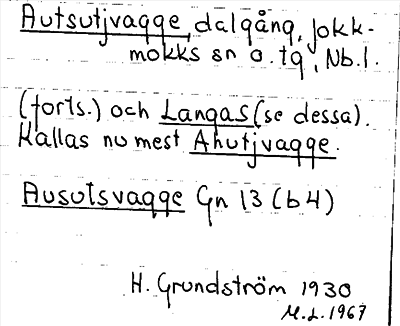 Autsutjvagge, dalgång, Jokk-
mokks sn o. tg, Nb. l.
(forts.) och Langas (se dessa).
Kallas nu mest Ahutjvagge.
Ausutsvagge Gn 13 (b4)
H. Grundström 1930
M.L. 1967